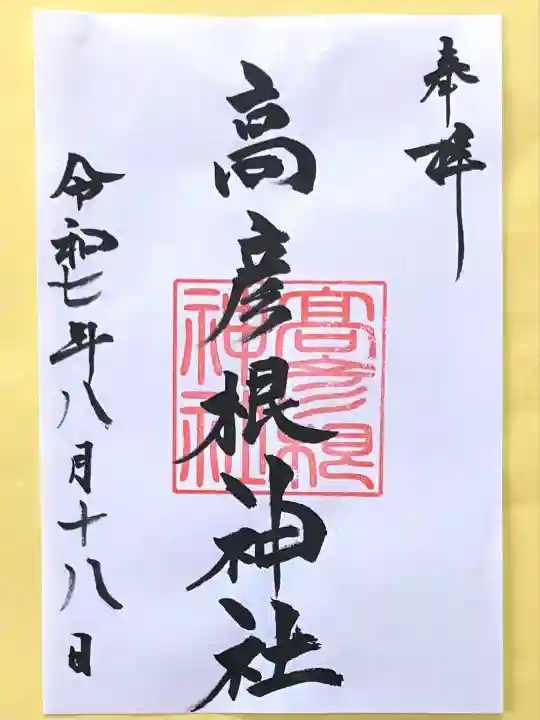 奉拝
高彦根神社
高彦根神社
令和七年八月十八日